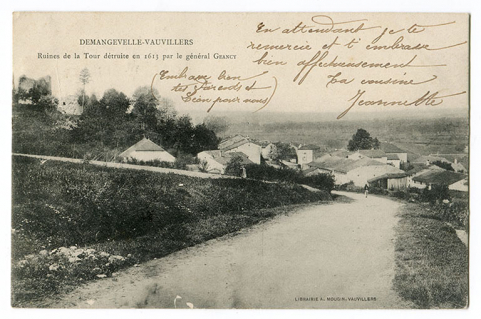 DEMANGEVELLE-VAUVILLERS
Ruines de la Tour détruite en 1613 par le général GEANCY
En attendant je te
remercie et t'embrasse
bien affectueusement
Ta cousine
Jeannette
(Embrasse bien
tes Parents
bien pour nous)
LIBRAIRIE A. VAUVILLERS